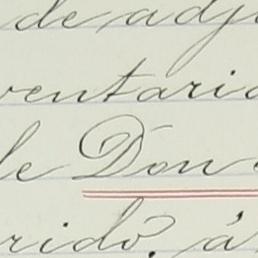 de adju
ventario
de Don
rido, á